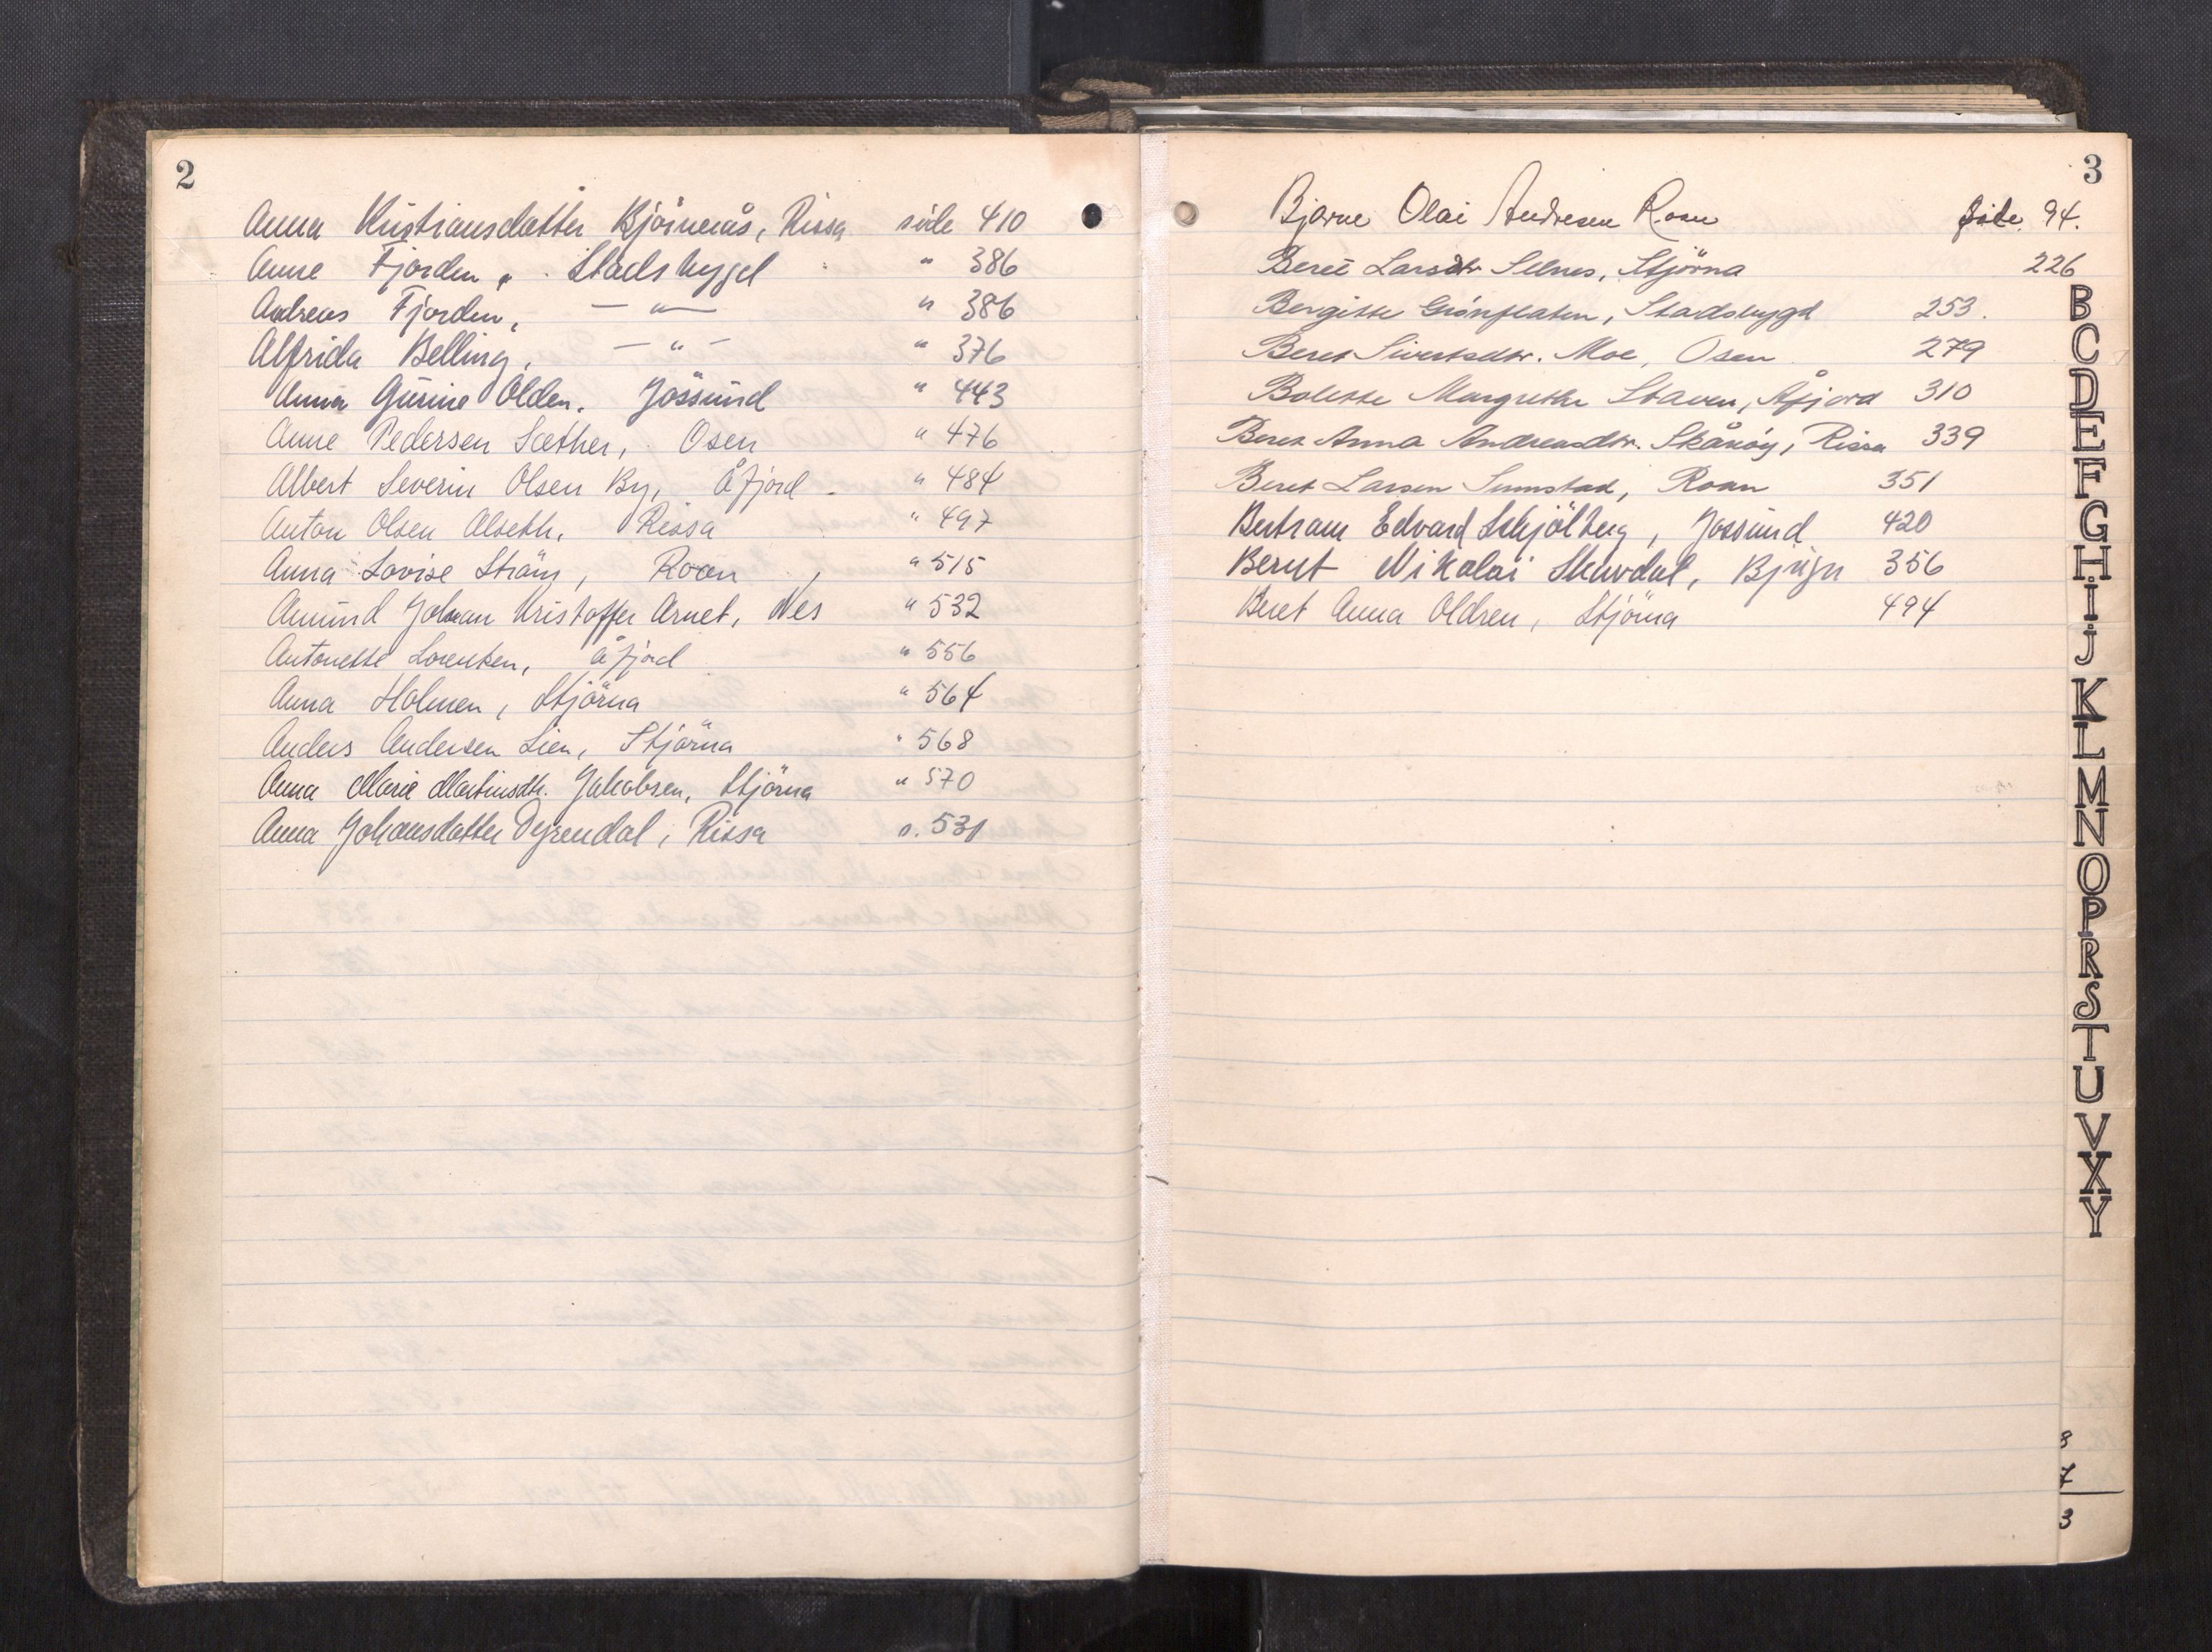 2
Anna Kristiansdatter Bjørnerås, Rissa side 410
Anne Fjorden, Stadsbygd " 386
Andreas Fjorden, — " — " 386
Alfrida Belling, — " — " 376
Anna Gurine Olden. Jössund " 443
Anne Pedersen Sæther, Osen " 476
Albert Severin Olsen By, Åfjord " 484
Anton Olsen Alseth, Rissa " 497
Anna Lovise Strøm, Roan " 515
Amund Johan Kristoffer Arnet, Nes " 532
Antonette Lorentzen, Åfjord " 556
Anna Holmen, Stjörna " 564
Anders Andersen Lien, Stjörna " 568
Anna Marie Martinsdtr. Jakobsen, Stjörna " 570
Anna Johansdatter Dyrendal, Rissa s. 531
3
Bjarne Olai Andresen Roan side 94.
Beret Larsdtr Selnes, Stjörna 226
Bergitte Grönflaten, Stadsbygd 253.
Beret Sivertsdtr. Moe, Osen 279
Bolette Margrethe Staven, Åfjord 310
Beret Anna Andreasdtr. Skånöy, Rissa 339
Beret Larsen Sumstad, Roan 351
Bertram Edvard Schjölberg, Jossund 420
Bernt Nikolai Skavdal, Bjugn 356
Beret Anna Oldren, Stjörna 494
B
C
D
E
F
G
H
I
J
K
L
M
N
O
P
R
S
T
U
V
X
Y
8
7
3